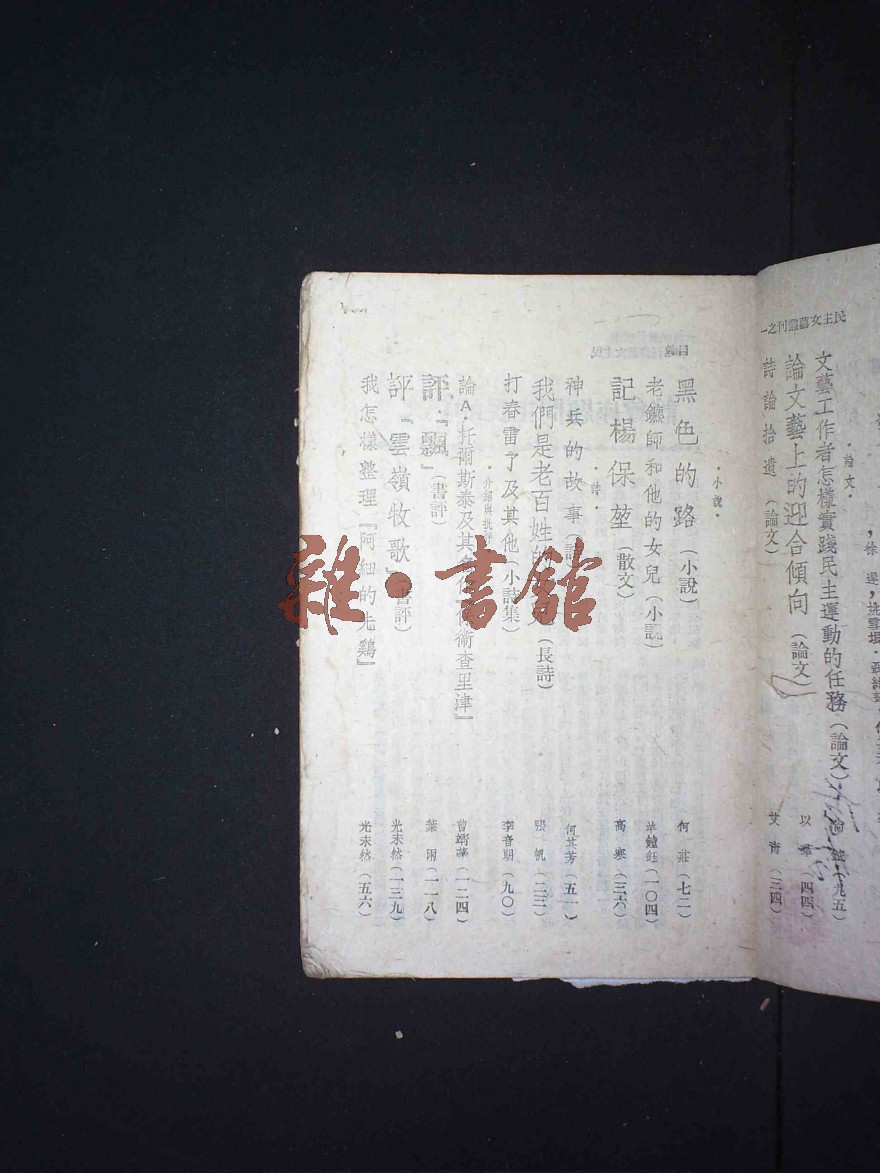 民主文藝叢刊之一
・論文・
文藝工作者怎樣實踐民主運動的任務(論文)
(九五)
論文藝上的迎合傾向(論文)
以羣(四四)
詩論拾遺(論文)
艾青(三四)
目錄
・小說・
黑色的路(小說)
何莊(七二)
老鐵師和他的女兒(小說)
羊鐘鈺(一〇四)
記楊保堃(散文)
高寒(三六)
・詩・
神兵的故事
何其芳(五一)
我們是老百姓的(長詩)
張帆(二三)
打春雷了及其他(小詩集)
李音明(九〇)
・介紹與批評
論A・托爾斯泰及其查里津』
曹靖華(一二四)
評『飄』(書評)
葉雨(一一八)
評『雲嶺牧歌』書評)
光未然(一三九)
我怎樣整理『阿細的先鷄』
光未然(五六)
雜・書館